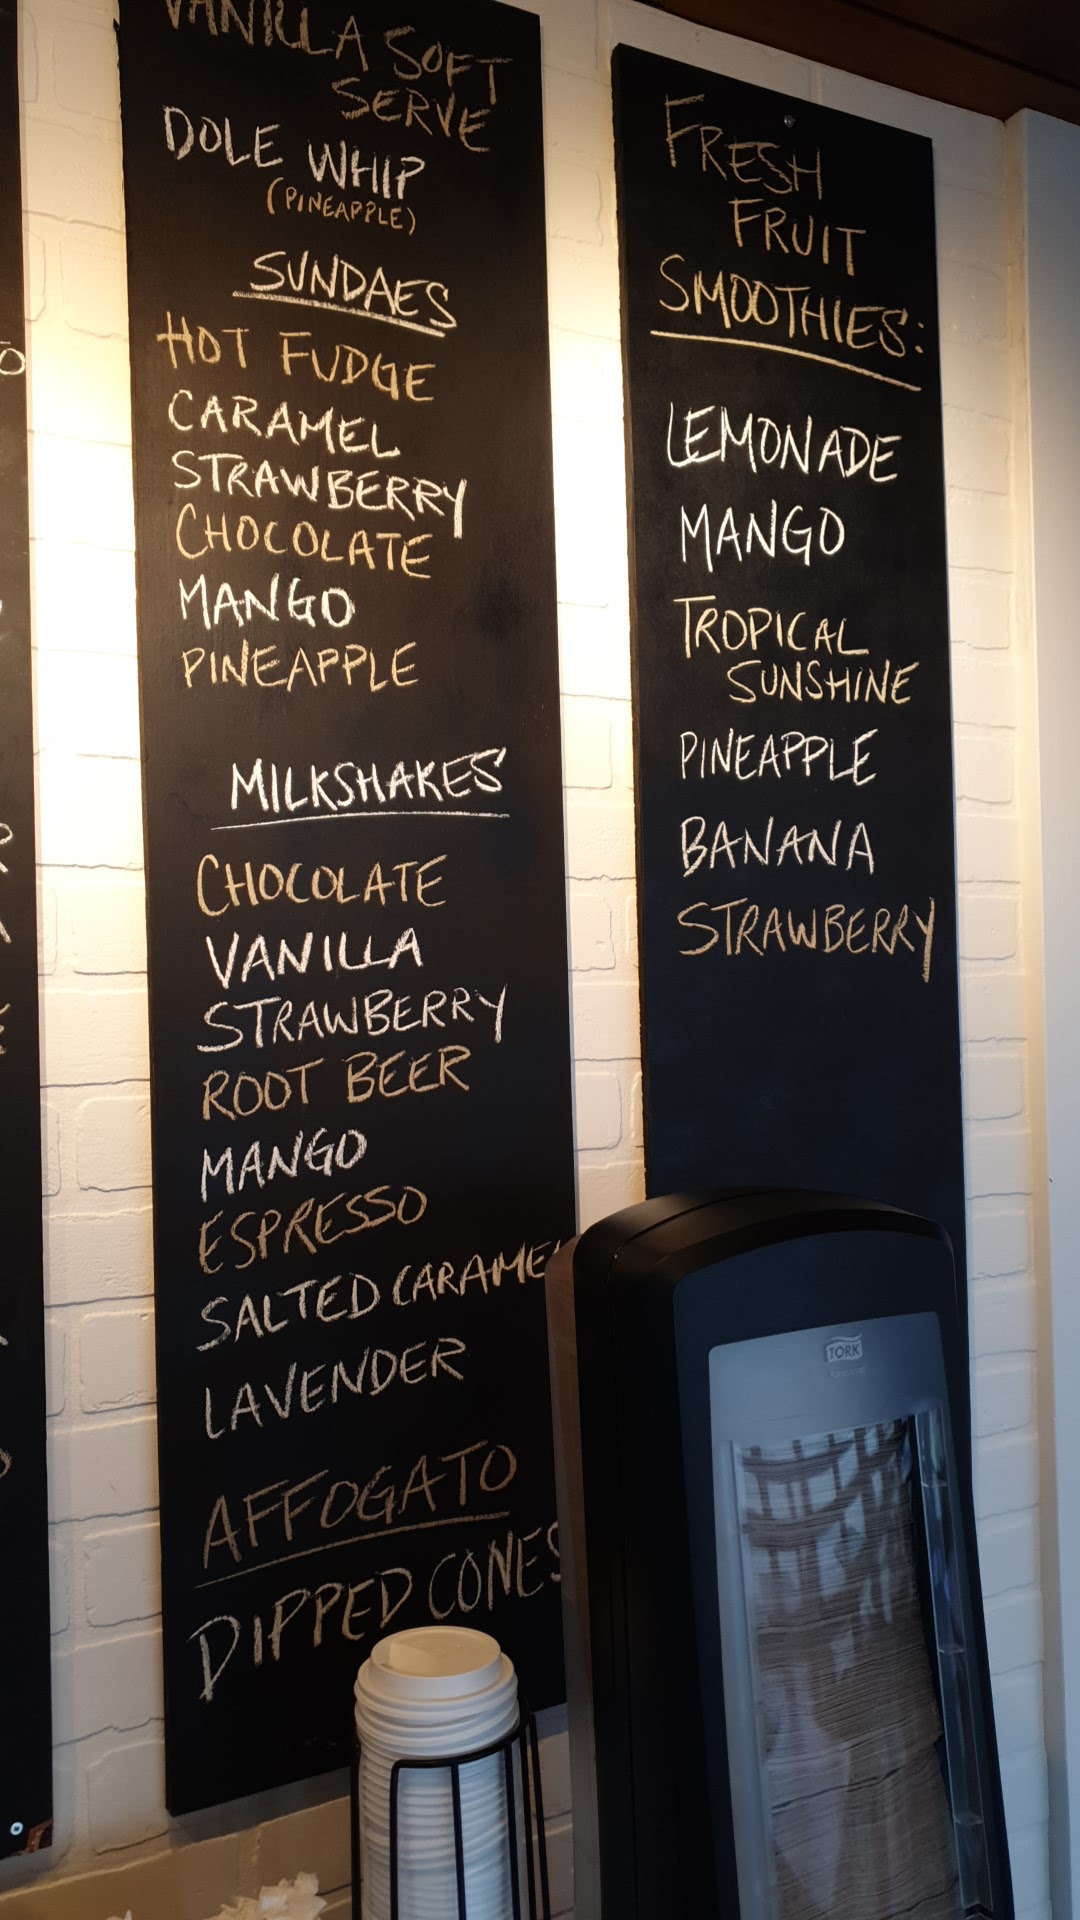 VANILLA SOFT
SERVE
DOLE WHIP
(PINEAPPLE)
SUNDAES
HOT FUDGE
CARAMEL
STRAWBERRY
CHOCOLATE
MANGO
PINEAPPLE
MILKSHAKES
CHOCOLATE
VANILLA
STRAWBERRY
ROOT BEER
MANGO
ESPRESSO
SALTED CARAME
LAVENDER
AFFOGATO
DIPPED CONES
FRESH
FRUIT
SMOOTHIES:
LEMONADE
MANGO
TROPICAL
SUNSHINE
PINEAPPLE
BANANA
STRAWBERRY
TORK